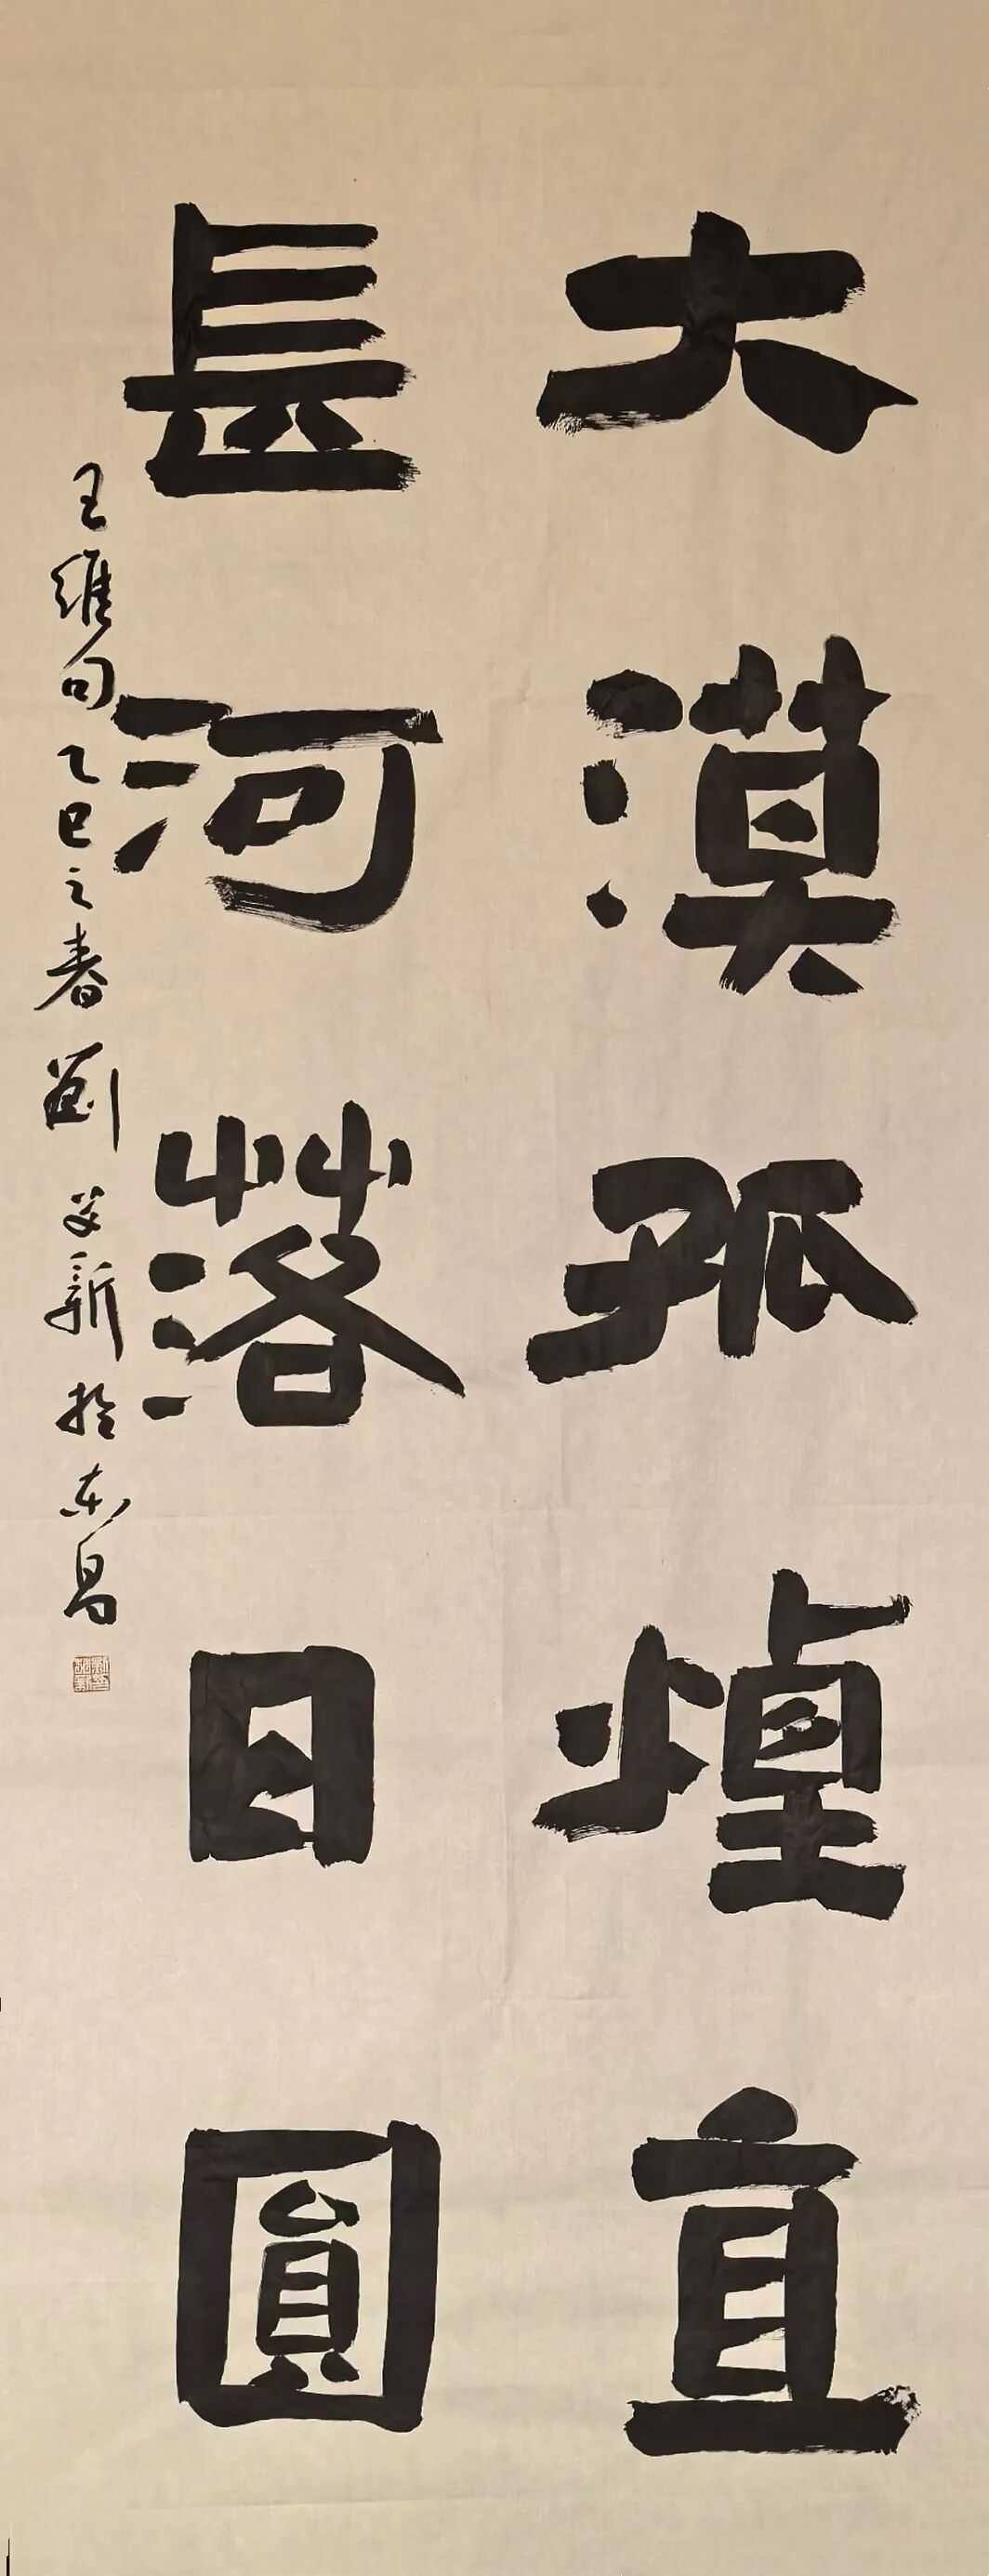 大漠孤煙直
長河落日圓
王維句乙巳之春劉 新於东昌